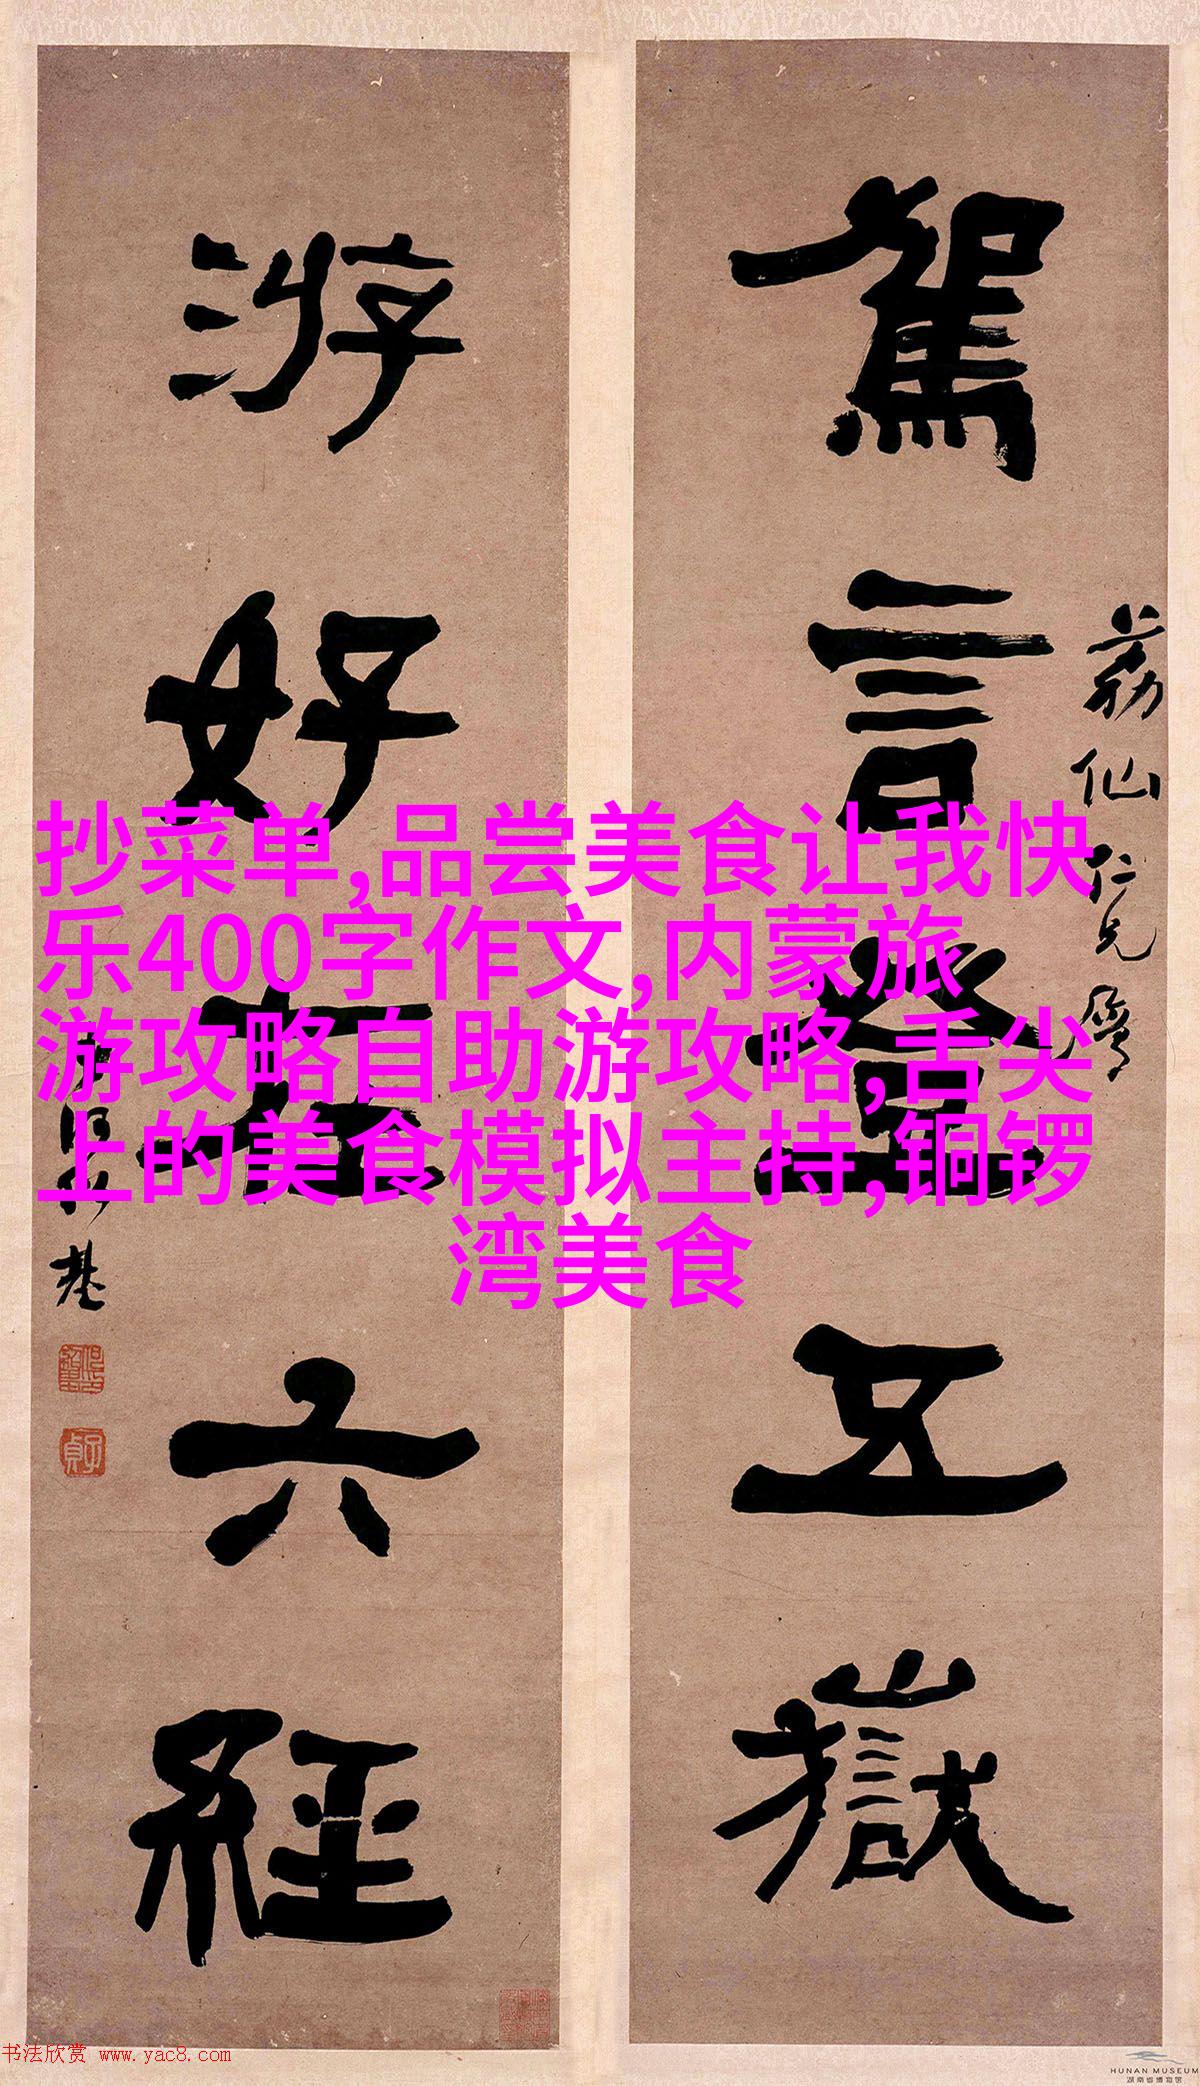 駕言登五嶽
荔仙仁兄
游好在六經
基
子貞
抄菜单,品尝美食让我快
乐400字作文,内蒙旅
游攻略自助游攻略,舌尖
上的美食模拟主持,铜锣
湾美食
书法欣赏 www.yac8.com
HUNAN MUSEUM
湖南省博物馆